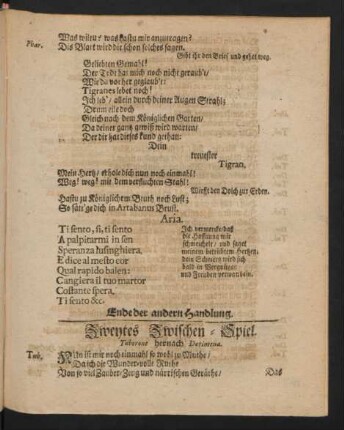 Was wilen? was hastu mir anzutragen?
Phar. Dis Blat wird dir schon solches sagen.
Gibt ihr den Brief und gehet weg.
Geliebten Gemahl!
Der Tod hat mich noch nicht geraub't/
Wie da vorher geglaub't:
Tigranes lebet noch!
Ich leb'/ allein durch deiner Augen Strahl;
Drum eile doch
Gleich nach dem Königlichen Garten/
Da deiner gantz gewiß wird warten/
Der dir hat dieses kund gethan:
Dein
treuester
Tigran.
Mein Hertz/ erhole dich nun noch einmahl!
Weg! weg! mit dem verfluchten Stahl!
Wirfft den Dolch zur Erden.
Hastu zu Königlichem Bluth noch Lust;
So sätt'ge dich in Artabanus Brust.
Aria.
Ti sento, sì, ti sento
A palpitarmi in sen
Speranza lusinghiera,
E dice al mesto cor
Qual rapido balen:
Cangiera il tuo martor
Costante spera,
Ti sento &c.
Ich vermercke/ daß
die Hoffnung mir
schmeichele/ und saget
meinem betrübtem Hertzen,
dein Schmertz wird sich
bald in Vergnügen
und Freuden verwandeln.
Ende der andern Handlung.
Zweytes Zwischen-Spiel.
Tuberone hernach Dorimena.
Tub. Nun ist mir noch einmahl so wohl zu Muthe/
Da ich die Wunder-volle Ruthe
Von so viel Zauber-Zeug und närrischen Geräthe/
Das